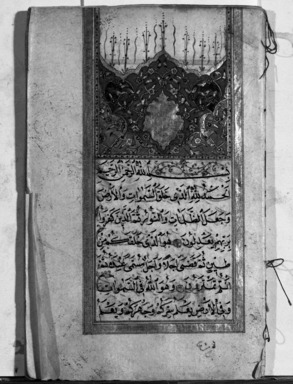 بسم الله الرحمن الرحيم
الحمد لله الذى خلق السموات والارض
وجعل الظلمات والنور ثم الذين كفروا
بربهم يعدلون هو الذى خلقكم من
طين ثم قضى اجلا واجل مسمى عنده ثم
انتم تمترون وهو الله فى السموات
وفى الارض يعلم سركم وجهركم ويعلم